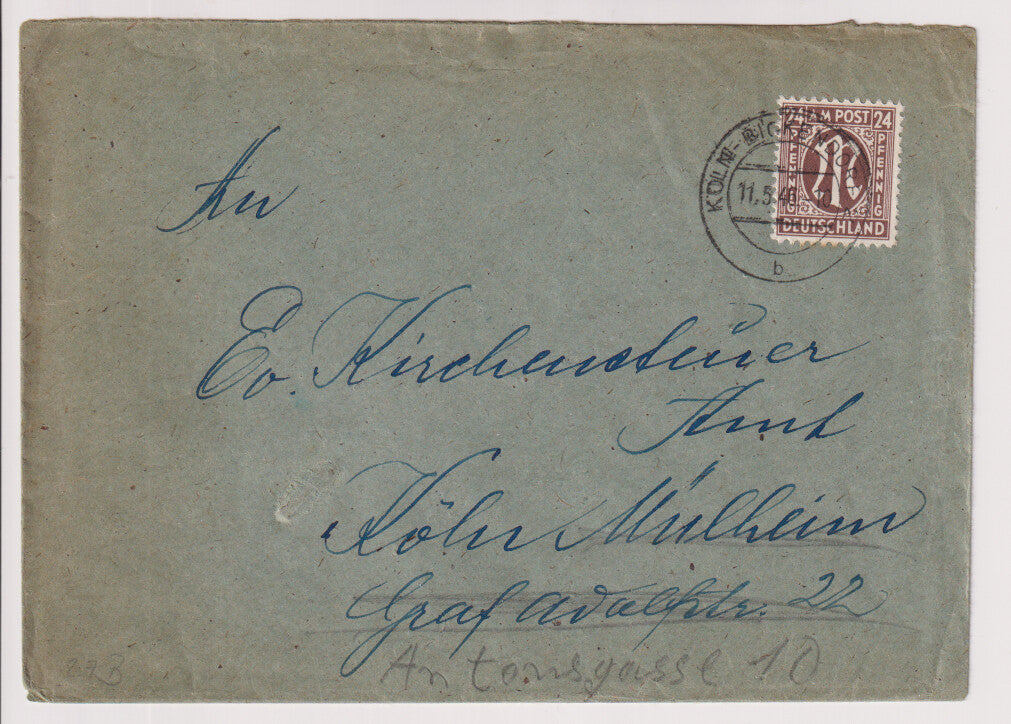 24 AM POST 24
PFENNIG PFENNIG
DEUTSCHLAND
KÖLN-BICKENDORF
11.5.46
b
An
Ev. Kirchensteuer
Amt
Köln Mülheim
Graf Adolfstr. 22
Antonsgasse 10
273